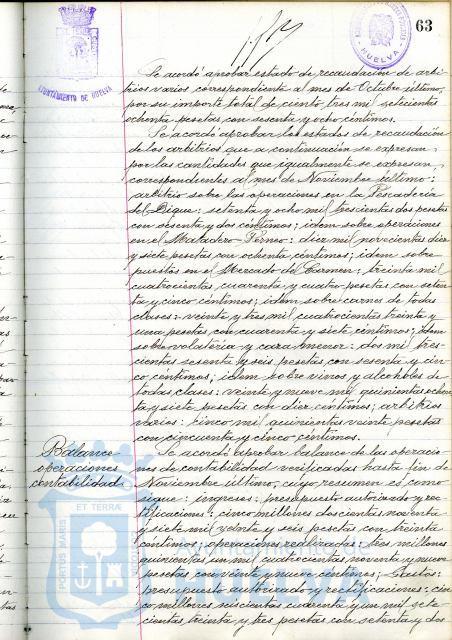 63
AYUNTAMIENTO DE HUELVA
HUELVA
Se acordó aprobar estado de recaudación de arbi-
trios varios correspondiente al mes de Octubre último,
por su importe total de ciento tres mil setecientas
ochenta pesetas con sesenta y ocho céntimos.
Se acordó aprobar los estados de recaudación
de los arbitrios que a continuación se expresan,
por las cantidades que igualmente se expresan,
correspondientes al mes de Noviembre último:
arbitrio sobre las operaciones en la Pescadería
del Dique: setenta y ocho mil trescientas dos pesetas
con sesenta y dos céntimos; idem sobre operaciones
en el Matadero Perneo: diez mil novecientas diez
y siete pesetas con ochenta céntimos; idem sobre
puestos en el Mercado del Carmen: treinta mil
cuatrocientas cuarenta y cuatro pesetas con seten-
ta y cinco céntimos; idem sobre carnes de todas
clases: veinte y tres mil cuatrocientas treinta y
una pesetas con cuarenta y siete céntimos; idem
sobre volatería y caza menor: dos mil tres-
cientas sesenta y seis pesetas con sesenta y cin-
co céntimos; idem sobre vinos y alcoholes de
todas clases: veinte y nueve mil quinientas ochen-
ta y siete pesetas con diez céntimos; arbitrios
varios: cinco mil quinientas veinte pesetas
con cincuenta y cinco céntimos.
Balance
operaciones
contabilidad
Se acordó aprobar balance de las operacio-
nes de contabilidad verificadas hasta fin de
Noviembre último, cuyo resumen es como
sigue: ingresos: presupuesto autorizado y rec-
tificaciones: cinco millones doscientas noventa
y siete mil veinte y seis pesetas con treinta
céntimos; operaciones realizadas: tres millones
quinientas un mil cuatrocientas noventa y nueve
pesetas con veinte y nueve céntimos; Gastos:
presupuesto autorizado y rectificaciones: cin-
co millones seiscientas cuarenta y un mil sete-
cientas treinta y tres pesetas con setenta y dos
PORTUS MARIS ET TERRÆ
Ayuntamiento de
HUELVA